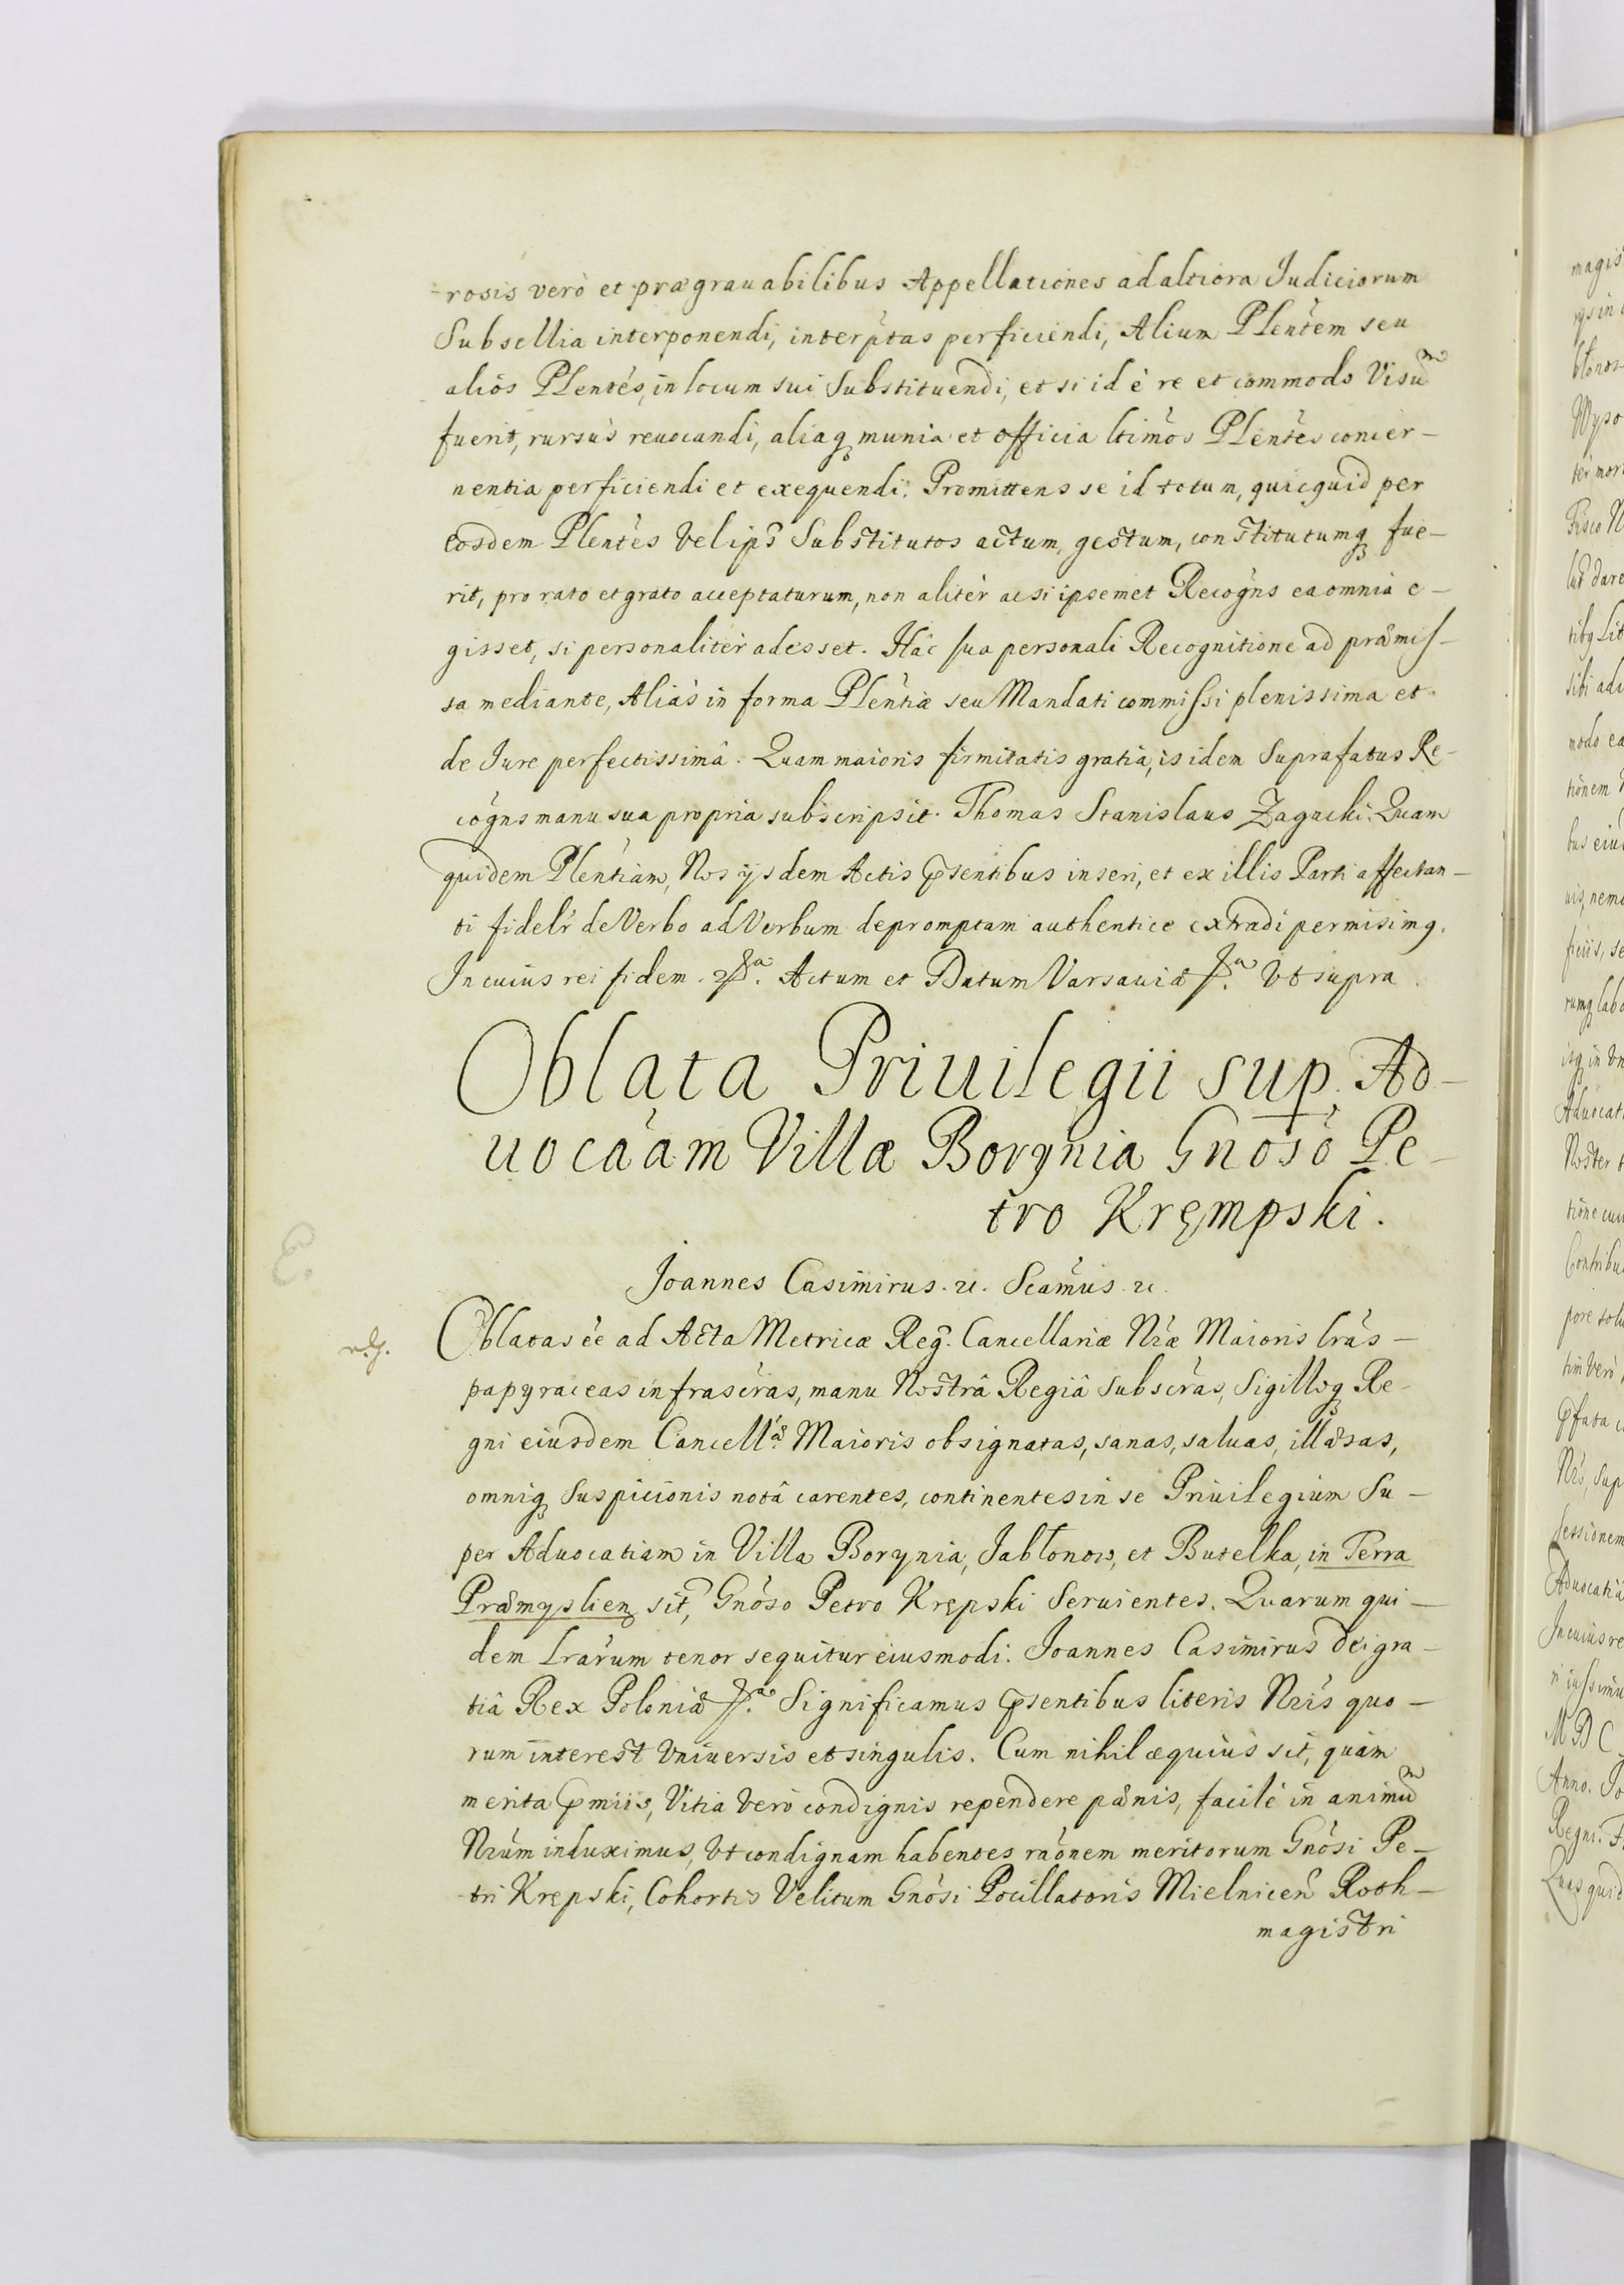 rosis verò et prægrauabilibus Appellationes ad altiora Judiciorum
Subsellia interponendi, interptas perficiendi, Alium Plentem seu
aliòs Plentes, in locum sui Substituendi, et si id è re et commodo Visu
fuerit, rursùs reuocandi, aliaq munia et officia ltimos Plentes concer-
nentia perficiendi et exequendi. Promittens se id totum, quicquid per
eosdem Plentes Vel ips Substitutos actum, gestum, constitutumq fue-
rit, pro rato et grato acceptaturum, non alitèr ac si ipsemet Recogns ea omnia e-
gisset, si personalitèr adesset. Hâc sua personali Recognitione ad præmis-
sa mediante, Aliàs in forma Plentiæ seu Mandati commissi plenissima et
de Jure perfectissimâ. Quam maioris firmitatis gratia, is idem Suprafatus Re-
cogns manu sua propria subscripsit. Thomas Stanislaus Zagucki. Quam
quidem Plentiam, Nos ijsdem Actis psentibus inseri, et ex illis Parti affectan-
ti fidelr de Verbo ad Verbum depromptam authentice extradi permisimq.
In cuius rei fidem. Actum et Datum Varsauiæ Vt supra.
Oblata Priuilegii sup. Ad-
uocaam Villæ Borynia Gnoso Pe-
tro Krępski.
Joannes Casimirus. Scamus.
Oblatas ee ad Acta Metricæ Reg. Cancellariæ Nræ Maioris lras
papyraceas infrascras, manu Nostrâ Regiâ Subscras, Sigilloq Re-
gni eiusdem Cancell Maioris obsignatas, sanas, saluas, illæsas,
omniq Suspicionis notâ carentes, continentes in se Priuilegium Su-
per Aduocatiam in Villa Borynia, Jabłonow, et Butelka, in Terra
Præmyslien sit, Gnoso Petro Krępski Seruientes. Quarum qui-
dem Lrarum tenor sequitur eiusmodi. Joannes Casimirus Dei gra-
tiâ Rex Poloniæ Significamus psentibus literis Nris quo-
rum interest Vniuersis et singulis. Cum nihil æquiùs sit, quàm
merita pmiis, Vitia verò condignis rependere pænis, facilè in animu
Nrum induximus, Vt condignam habentes raonem meritorum Gnosi Pe-
tri Krępski, Cohortis Velitum Gnosi Pocillatoris Mielnicen Roth-
magistri